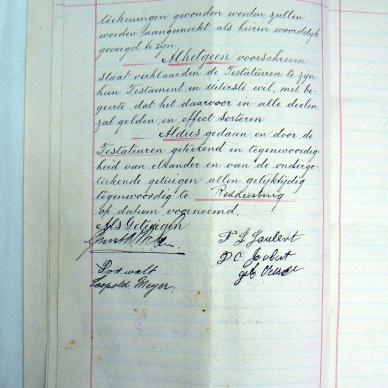 teekeningen gevonden worden zullen
worden aangemerkt als hierin woordelijk
gevoegd te zijn
Al hetgeen voorschreven
staat verklaarden de Testateuren te zijn
hun Testament en uiterste wil, met be-
geerte dat het daarvoor in alle deelen
zal gelden en effect sorteren
Aldus gedaan en door de
Testateuren geteekend in tegenwoordig
heid van elkander en van de onderge-
teekende getuigen allen gelijktijdig
tegenwoordig te Reddersburg
op datum voornoemd.
Als Getuigen
F J Joubert
D C Joubert
geb
Leopold Meyer.